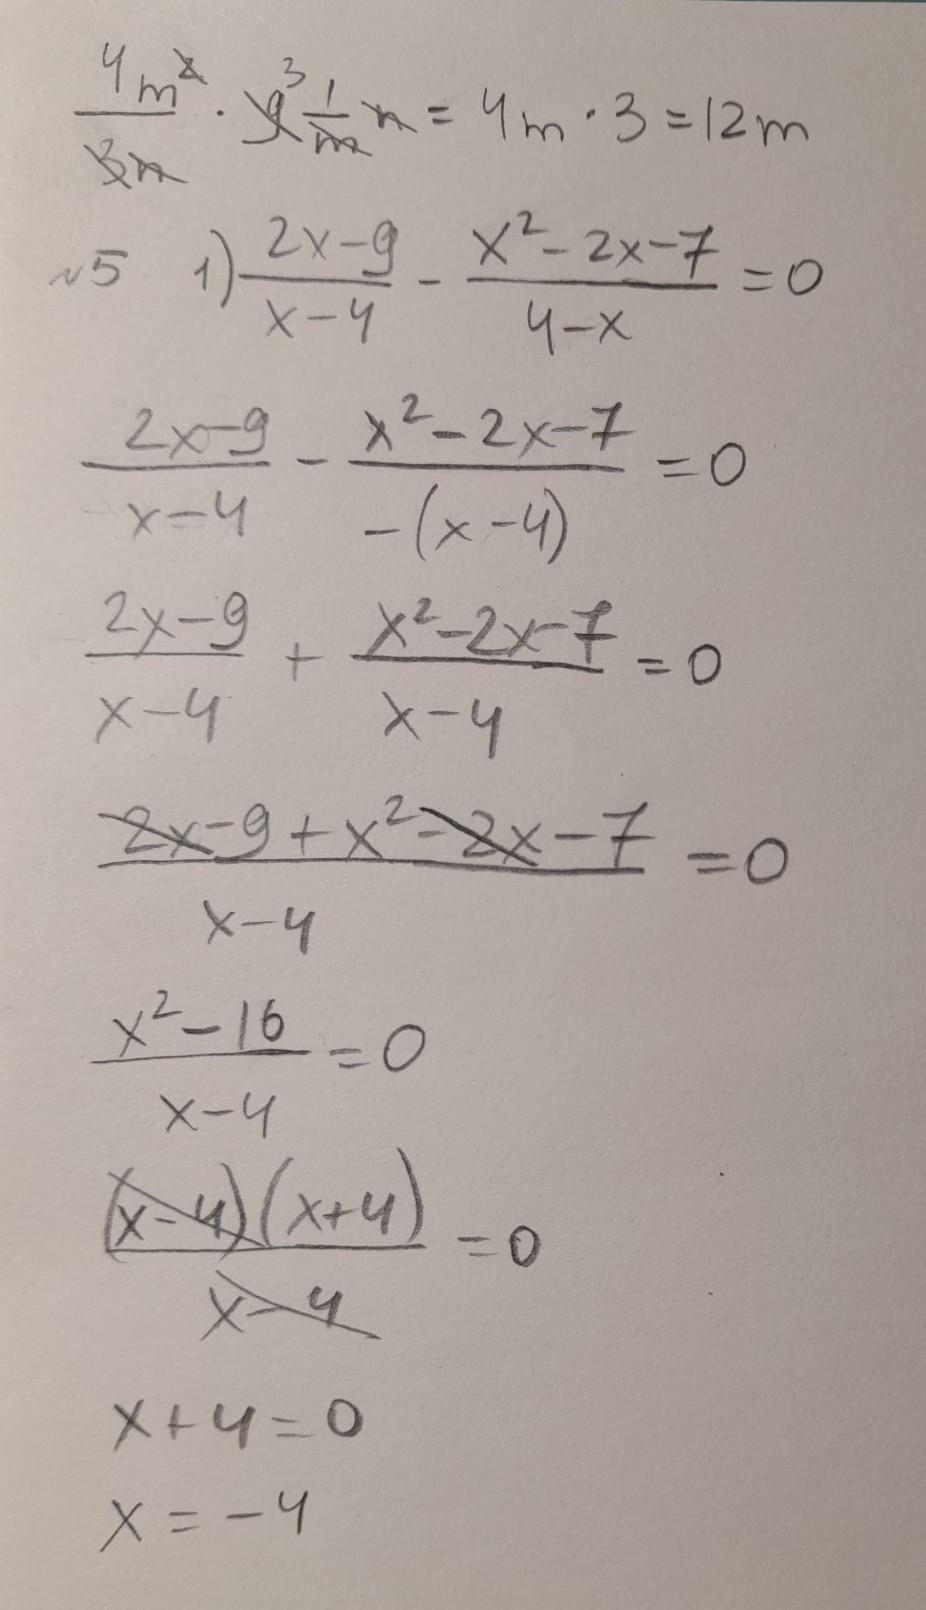 4m²/3n · 9³ 1/m n = 4m · 3 = 12m
№5 1) (2x-9)/(x-4) - (x²-2x-7)/(4-x) = 0
(2x-9)/(x-4) - (x²-2x-7)/(-(x-4)) = 0
(2x-9)/(x-4) + (x²-2x-7)/(x-4) = 0
(2x-9+x²-2x-7)/(x-4) = 0
(x²-16)/(x-4) = 0
((x-4)(x+4))/(x-4) = 0
x+4=0
x = -4